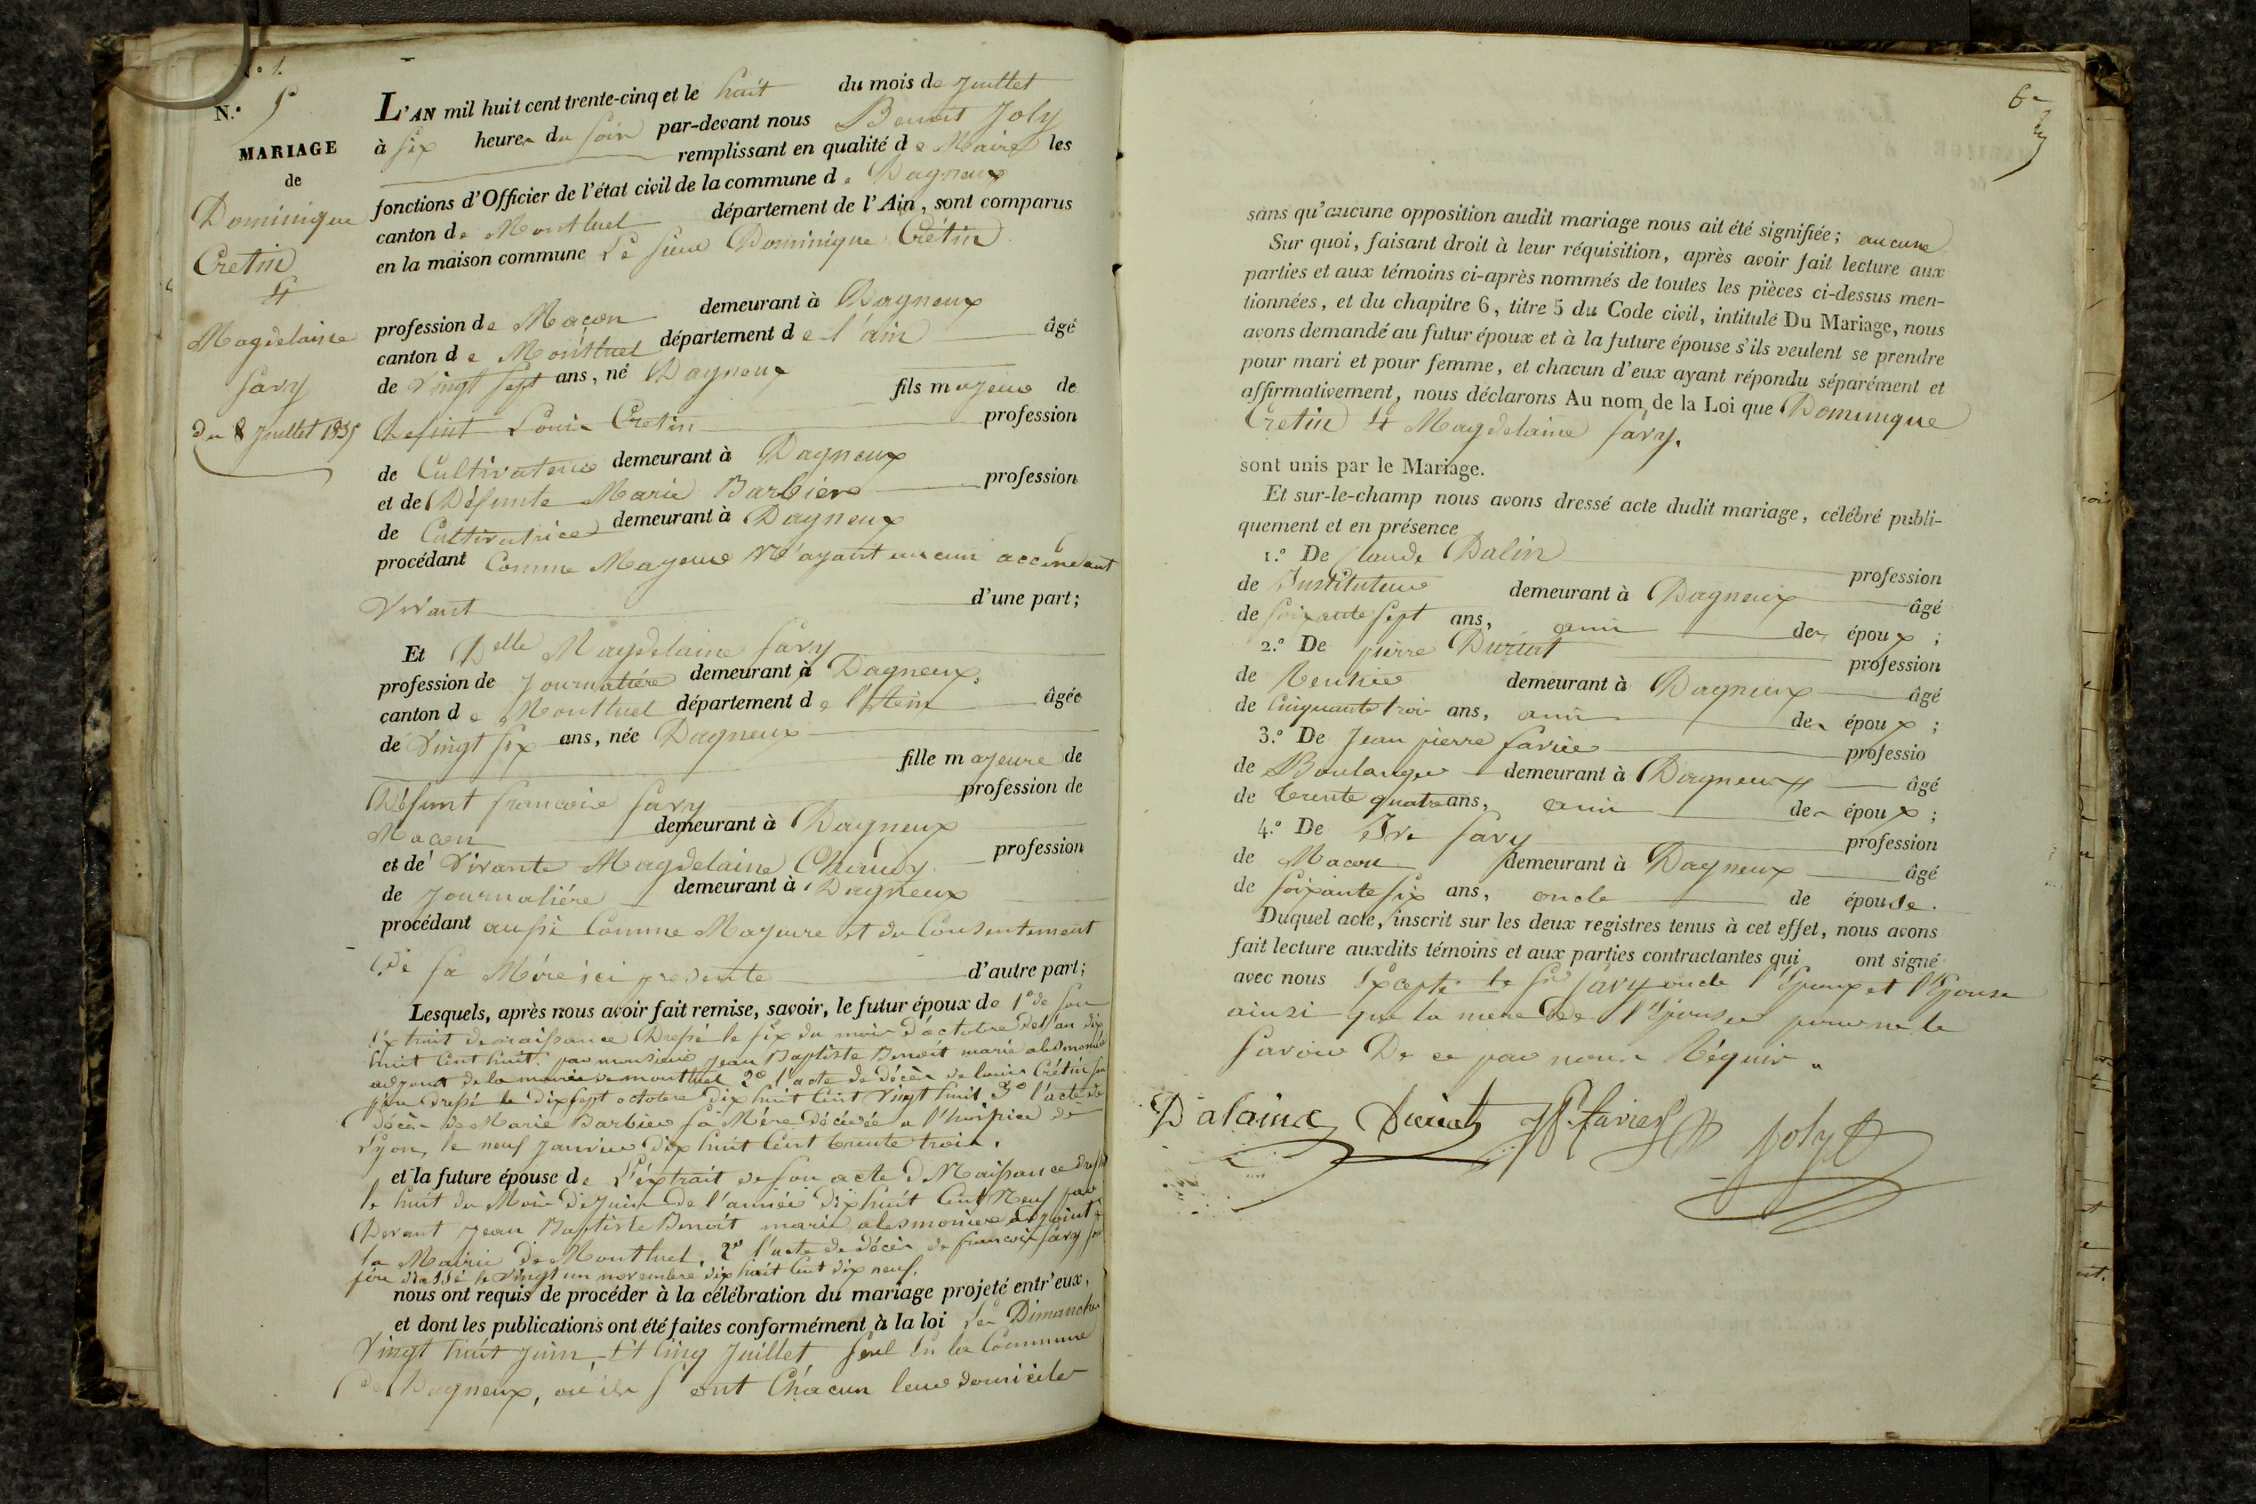 N.° 5
MARIAGE
de
Dominique
Cretin
Et
Magdelaine
Savy
du 8 Juillet 1835
L'AN mil huit cent trente-cinq et le huit du mois de Juillet
à six heures du soir par-devant nous Benoit Joly
remplissant en qualité de Maire les
fonctions d'Officier de l'état civil de la commune de Dagneux
canton de Montluel département de l'Ain, sont comparus
en la maison commune Le sieur Dominique Crétin
profession de Maçon demeurant à Dagneux
canton de Montluel département de l'ain âgé
de vingt sept ans, né Dagneux
fils majeur de
Defunt Louis Cretin profession
de Cultivateur demeurant à Dagneux
et de Défunte Marie Barbier profession
de Cultivatrice demeurant à Dagneux
procédant Comme Majeur N'ayant aucun accendant
vivant d'une part;
Et Delle Magdelaine Savy
profession de Journalière demeurant à Dagneux,
canton de Montluel département de l'Ain âgée
de vingt six ans, née Dagneux
fille majeure de
Défunt francois Savy profession de
Macon demeurant à Dagneux
et de vivante Magdelaine profession
de Journalière demeurant à Dagneux
procédant aussi Comme Majeure et du Consentement
de sa Mère ici presente d'autre part;
Lesquels, après nous avoir fait remise, savoir, le futur époux de 1° de son
Extrait de naissance Dressé le six du mois d'octobre de l'an dix
huit cent huit par monsieur Jean Baptiste Benoit marie alesmonier
adjoint de la mairie de montluel 2° l'acte de décès de louis Crétin son
père dressé le dix sept octobre dix huit cent vingt huit 3° l'acte de
décès de Marie Barbier sa Mère décédée a l'hospice de
Lyon, le neuf janvier dix huit cent trente trois.
et la future épouse de L'extrait de son acte de Naissance dressé
le huit du Mois de Juin de l'année dix huit cent Neuf par
Devant Jean Baptiste Benoit marie alesmonier adjoint
la Mairie de Montluel. 2° l'acte de décès de francois Savy son
père dressé le vingt un novembre dix huit cent dix neuf.
nous ont requis de procéder à la célébration du mariage projeté entr'eux,
et dont les publications ont été faites conformément à la loi Les Dimanches
vingt huit juin, Et cinq Juillet, seul En la Commune
de Dagneux, où ils ont Chacun leur domicile
6e
sans qu'aucune opposition audit mariage nous ait été signifiée; aucune
Sur quoi, faisant droit à leur réquisition, après avoir fait lecture aux
parties et aux témoins ci-après nommés de toutes les pièces ci-dessus men-
tionnées, et du chapitre 6, titre 5 du Code civil, intitulé Du Mariage, nous
avons demandé au futur époux et à la future épouse s'ils veulent se prendre
pour mari et pour femme, et chacun d'eux ayant répondu séparément et
affirmativement, nous déclarons Au nom de la Loi que Dominique
Cretin Et Magdelaine Savy.
sont unis par le Mariage.
Et sur-le-champ nous avons dressé acte dudit mariage, célébré publi-
quement et en présence
1.° De Claude Dalin profession
de Instituteur demeurant à Dagneux âgé
de soixante sept ans, ami des époux;
2.° De pierre Duriat profession
de Rentier demeurant à Dagneux âgé
de Cinquante trois ans, ami des époux;
3.° De Jean pierre favier professio
de Boulanger demeurant à Dagneux âgé
de trente quatre ans, ami des époux;
4.° De Savy profession
de Macon demeurant à Dagneux âgé
de soixante six ans, oncle de épouse.
Duquel acte, inscrit sur les deux registres tenus à cet effet, nous avons
fait lecture auxdits témoins et aux parties contractantes qui ont signé
avec nous Excepté le Sr Savy oncle l'Epoux et l'Epouse
ainsi que la mere de l'Epouse pour ne le
savoir De ce par nous Réquis.
Dalain Duriat JP favier Joly